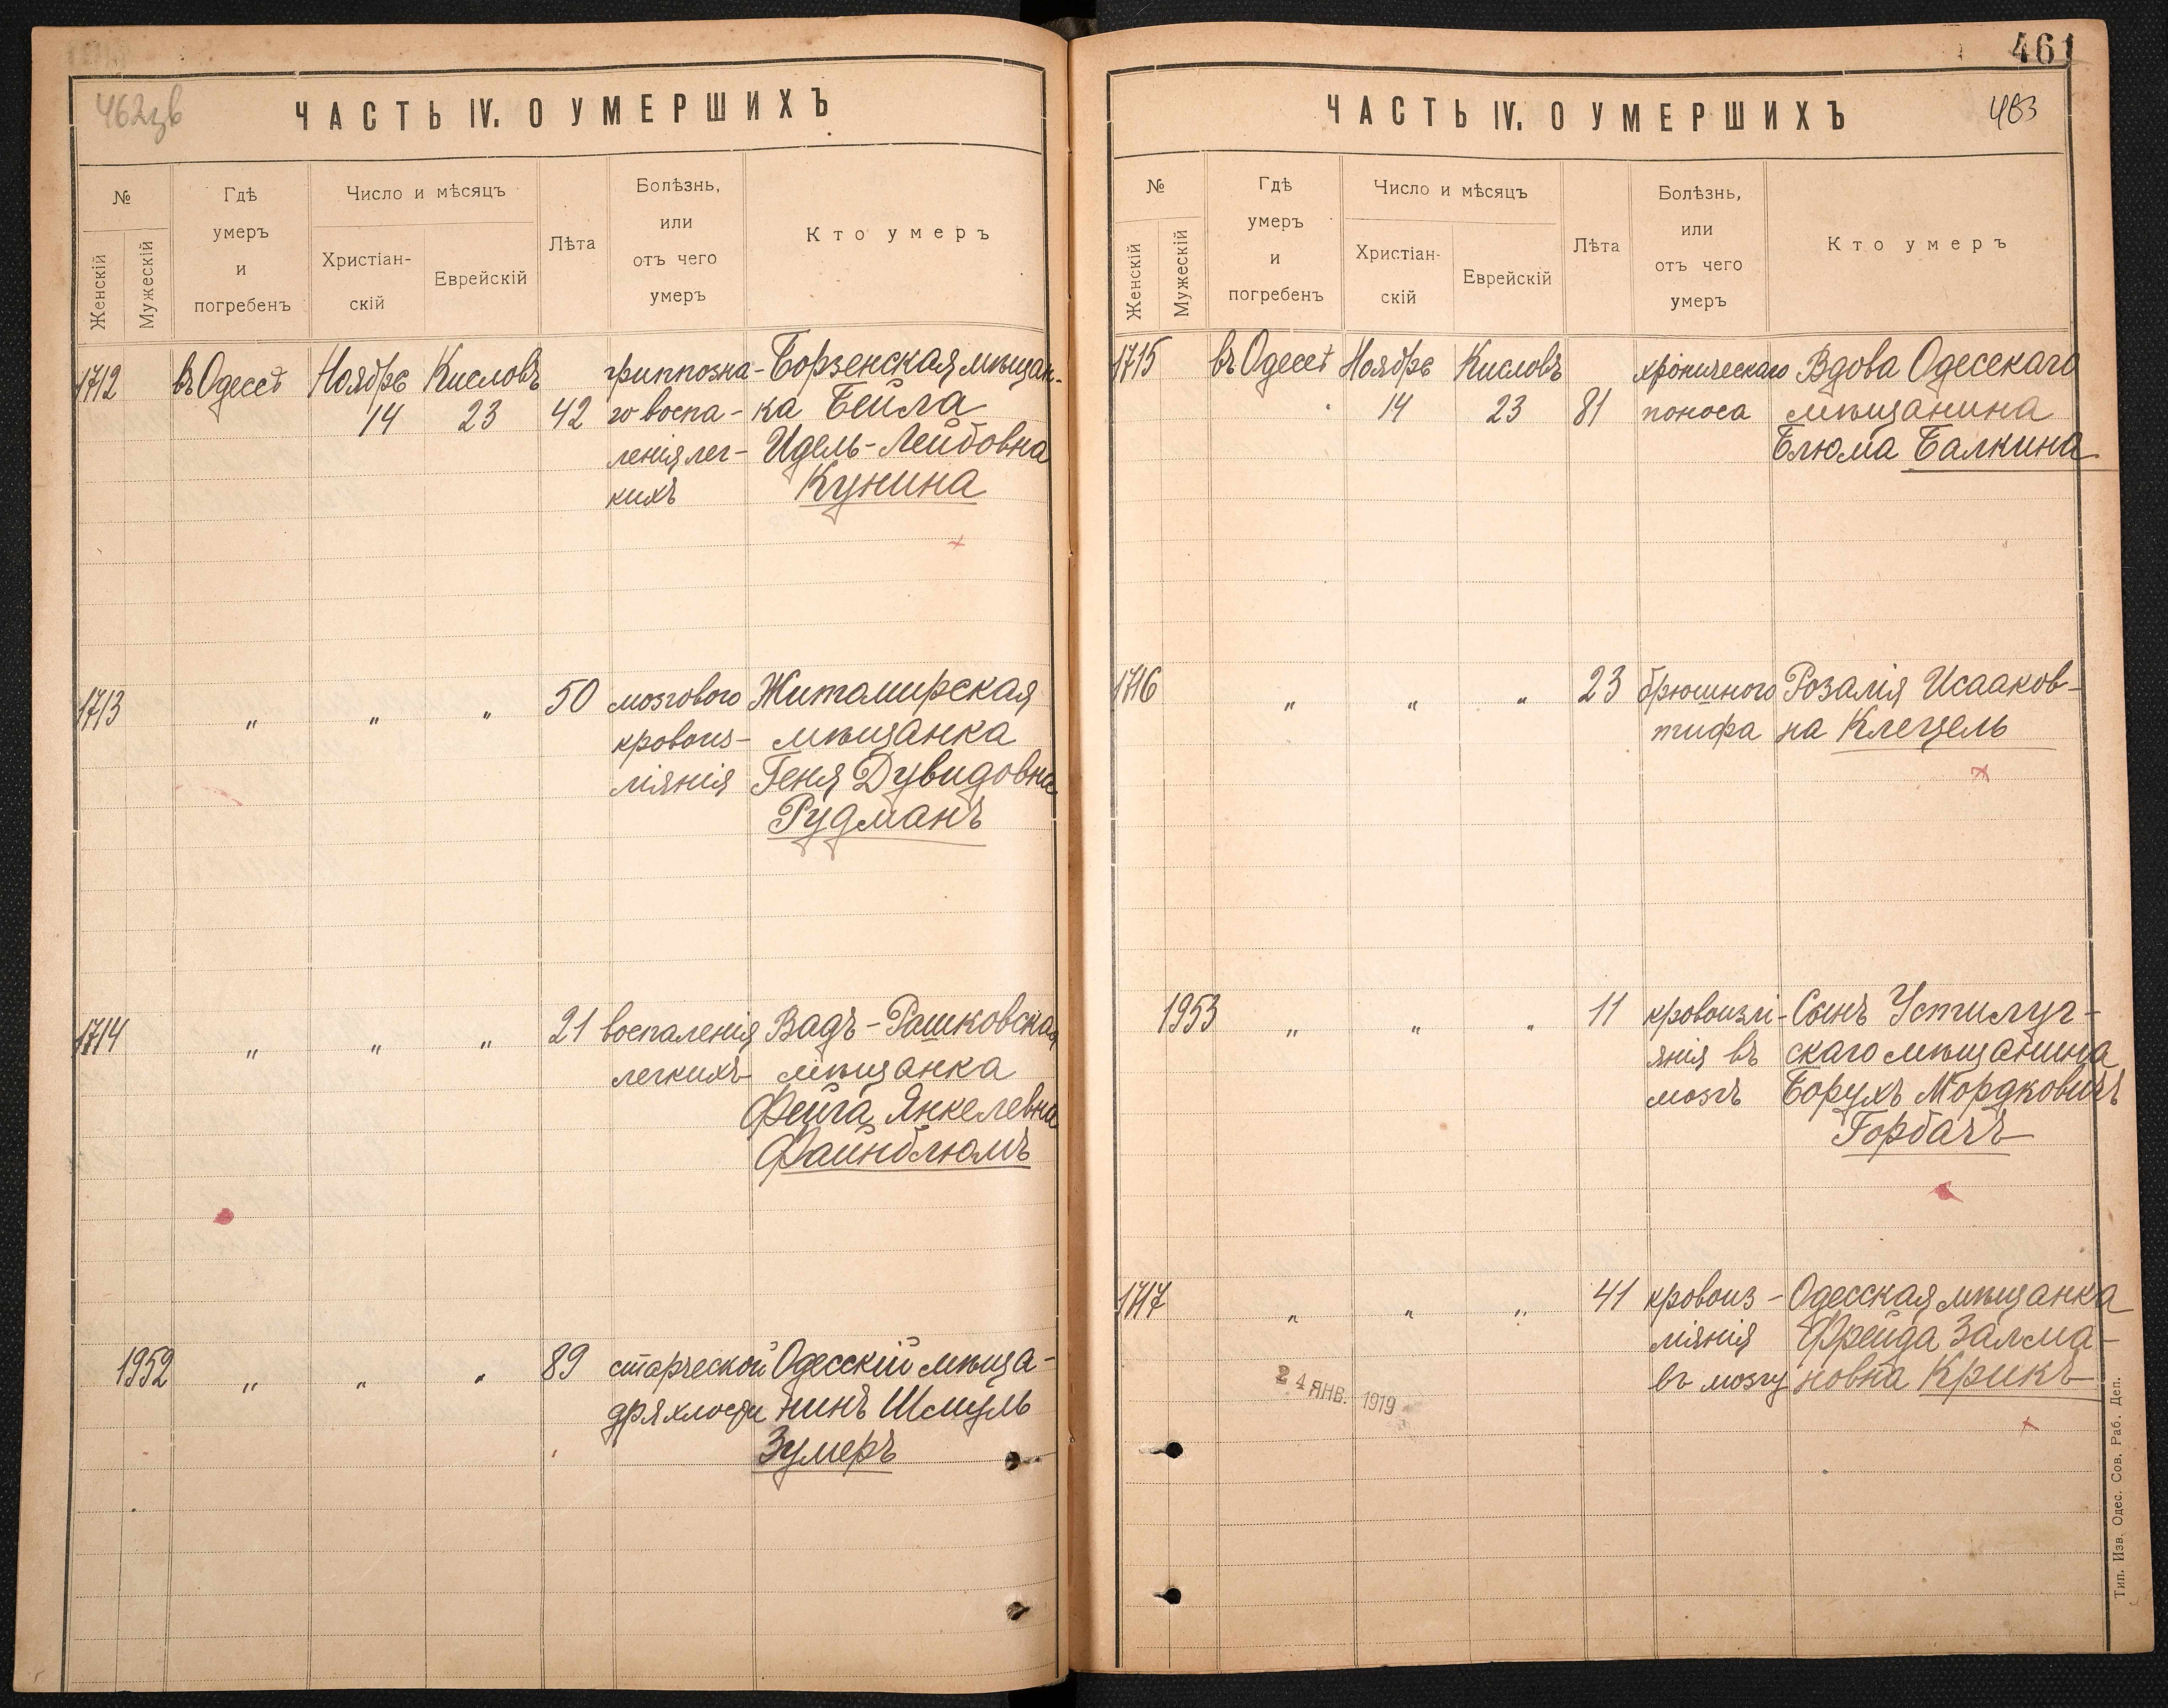 462зв
ЧАСТЬ IV. О УМЕРШИХЪ
№
Женскій
Мужескій
Гдѣ
умеръ
и
погребенъ
Число и мѣсяцъ
Христіан-
скій
Еврейскій
Лѣта
Болѣзнь,
или
отъ чего
умеръ
Кто умеръ
1712 въ Одессѣ Ноябрь Кисловъ гриппозна- Борзенская мѣщан-
14 23 42 го воспа- ка Бейла
ленія лег- Идель-Лейбовна
кихъ Кунина
1713 " " " 50 мозгового Житомирская
кровоиз- мѣщанка
ліянія Геня Дувидовна
Рудманъ
1714 " " " 21 воспаленія Вадъ-Рашковская
легкихъ мѣщанка
Фейга Янкелевна
Файнблюмъ
1952 " " " 89 старческой Одесскій мѣща-
дряхлости нинъ Шмуль
Зумеръ
461
ЧАСТЬ IV. О УМЕРШИХЪ
463
№
Женскій
Мужескій
Гдѣ
умеръ
и
погребенъ
Число и мѣсяцъ
Христіан-
скій
Еврейскій
Лѣта
Болѣзнь,
или
отъ чего
умеръ
Кто умеръ
1715 въ Одессѣ Ноябрь Кисловъ хроническаго Вдова Одесскаго
14 23 81 поноса мѣщанина
Блюма Балкина
1716 " " " 23 брюшного Розалія Исааков-
тифа на Клецель
1953 " " " 11 кровоизлі- Сынъ Устилуг-
янія въ скаго мѣщанина
мозгъ Борухъ Мордковичъ
Горбачъ
1717 " " " 41 кровоиз- Одесская мѣщанка
ліянія Фрейда Залма-
въ мозгу новна Крикъ
24 ЯНВ. 1919
Тип. Изв. Одес. Сов. Раб. Деп.